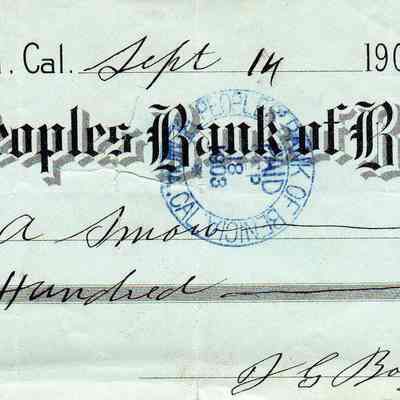 , Cal. Sept 14 190
Peoples Bank of B
PEOPLE'S BANK OF BENICIA, CAL.
PAID
18
1903
a Snow
Hundred
G Bo